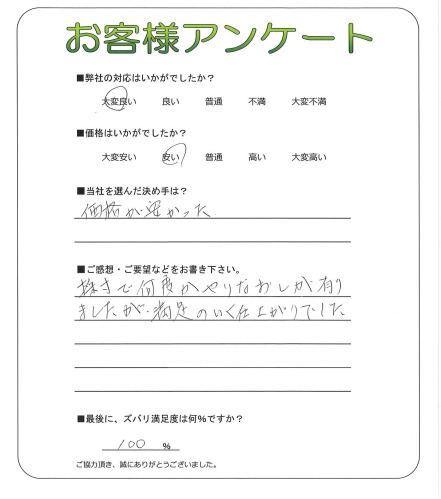 お客様アンケート
■弊社の対応はいかがでしたか？
大変良い 良い 普通 不満 大変不満
■価格はいかがでしたか？
大変安い 安い 普通 高い 大変高い
■当社を選んだ決め手は？
価格が安かった
■ご感想・ご要望などをお書き下さい。
で何度かやりなおしが有り
ましたが、満足のいく仕上がりでした
■最後に、ズバリ満足度は何%ですか？
100 %
ご協力頂き、誠にありがとうございました。